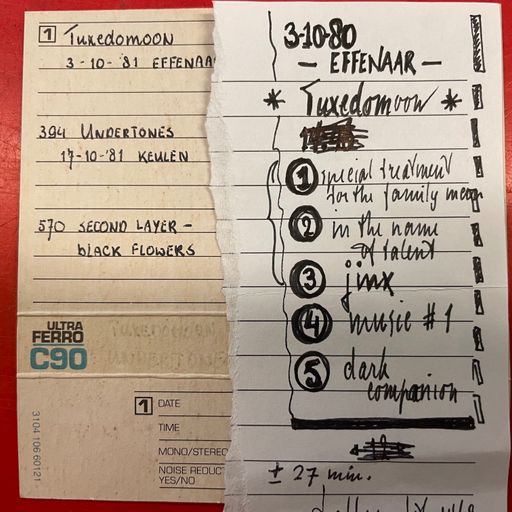 1 Tuxedomoon
3-10-'81 EFFENAA
394 UNDERTONES
17-10-'81 KEULEN
570 SECOND LAYER -
bLACK FLOWERS
ULTRA
FERRO
C90
1 DATE
TIME
MONO/STEREO
NOISE REDUC
YES/NO
3104 106 60121
3-10-80
- EFFENAAR -
* Tuxedomoon *
1 special treatment
for the family man
2 in the name
of talent
3 jinx
4 music #1
5 dark
companion
± 27 min.